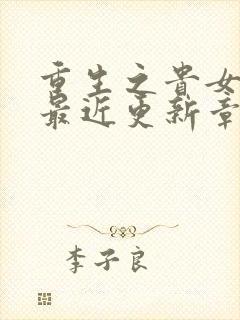 重生之贵女
最近更新章
李子良